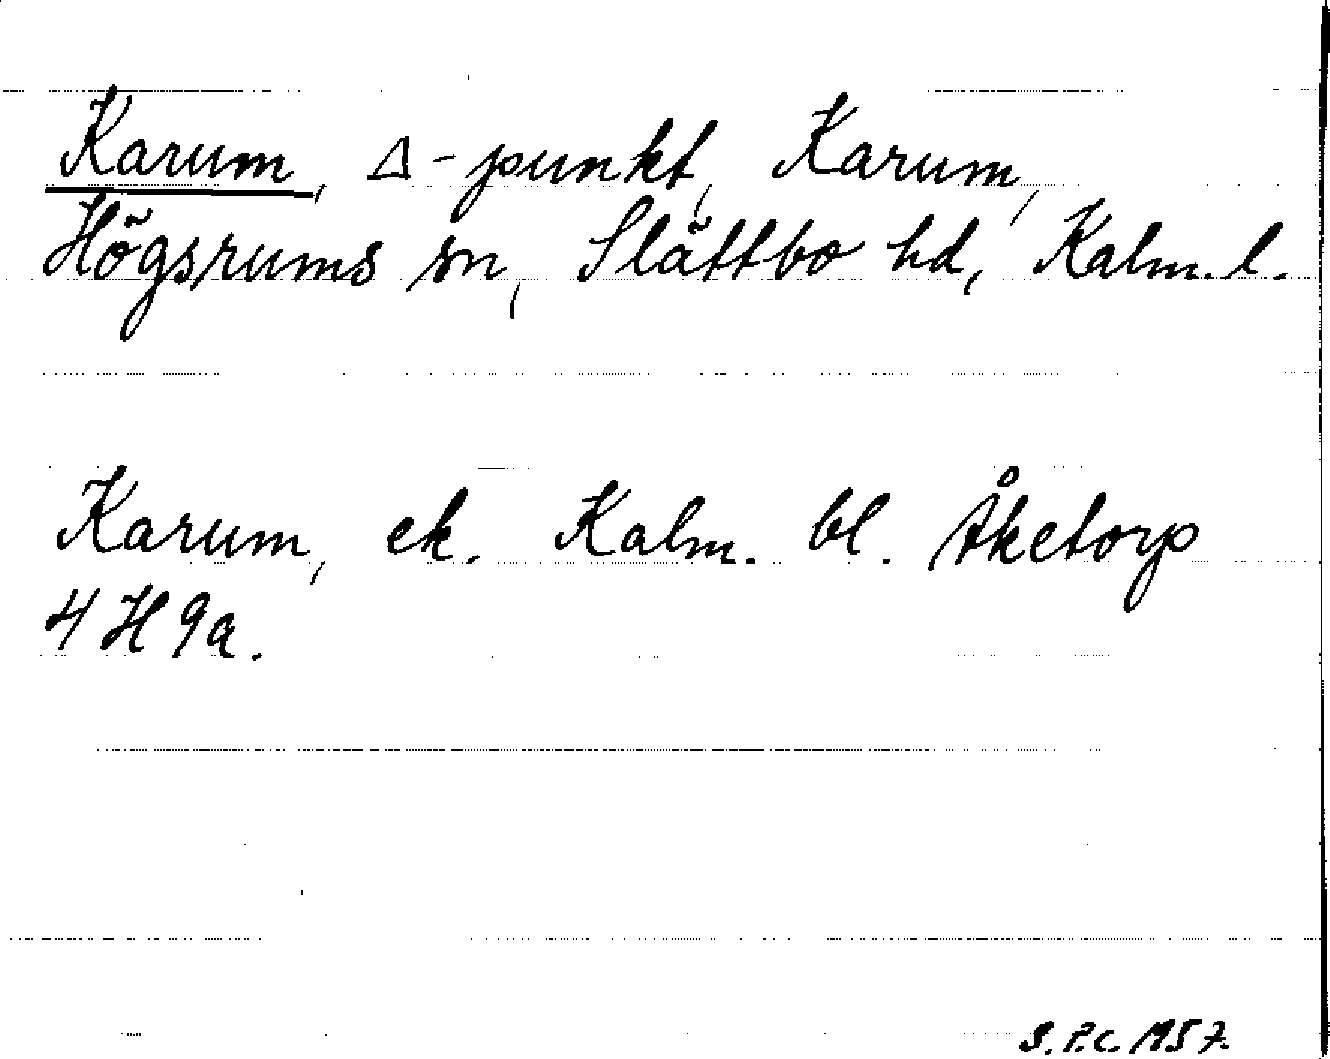 Karum, Δ-punkt, Karum,
Högsrums sn, Slättbo hd, Kalm. l.
Karum, ek. Kalm. bl. Åketorp
4 H 9a.
S.P.C. 1957.